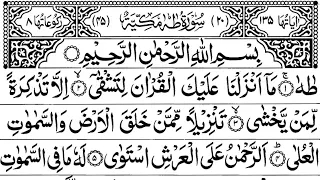 اٰیاتھا ۱۳۵ (۲۰) سُوْرَۃُ طٰهٰ مَكِّیَّۃٌ (۴۵) رکوعاتھا ۸
بِسْمِ اللّٰهِ الرَّحْمٰنِ الرَّحِیْمِ
طٰهٰ ۚ﴿۱﴾ مَاۤ اَنْزَلْنَا عَلَیْكَ الْقُرْاٰنَ لِتَشْقٰۤی ۙ﴿۲﴾ اِلَّا تَذْكِرَةً
لِّمَنْ یَّخْشٰی ۙ﴿۳﴾ تَنْزِیْلًا مِّمَّنْ خَلَقَ الْاَرْضَ وَ السَّمٰوٰتِ
الْعُلٰی ؕ﴿۴﴾ اَلرَّحْمٰنُ عَلَی الْعَرْشِ اسْتَوٰی ﴿۵﴾ لَهٗ مَا فِی السَّمٰوٰتِ